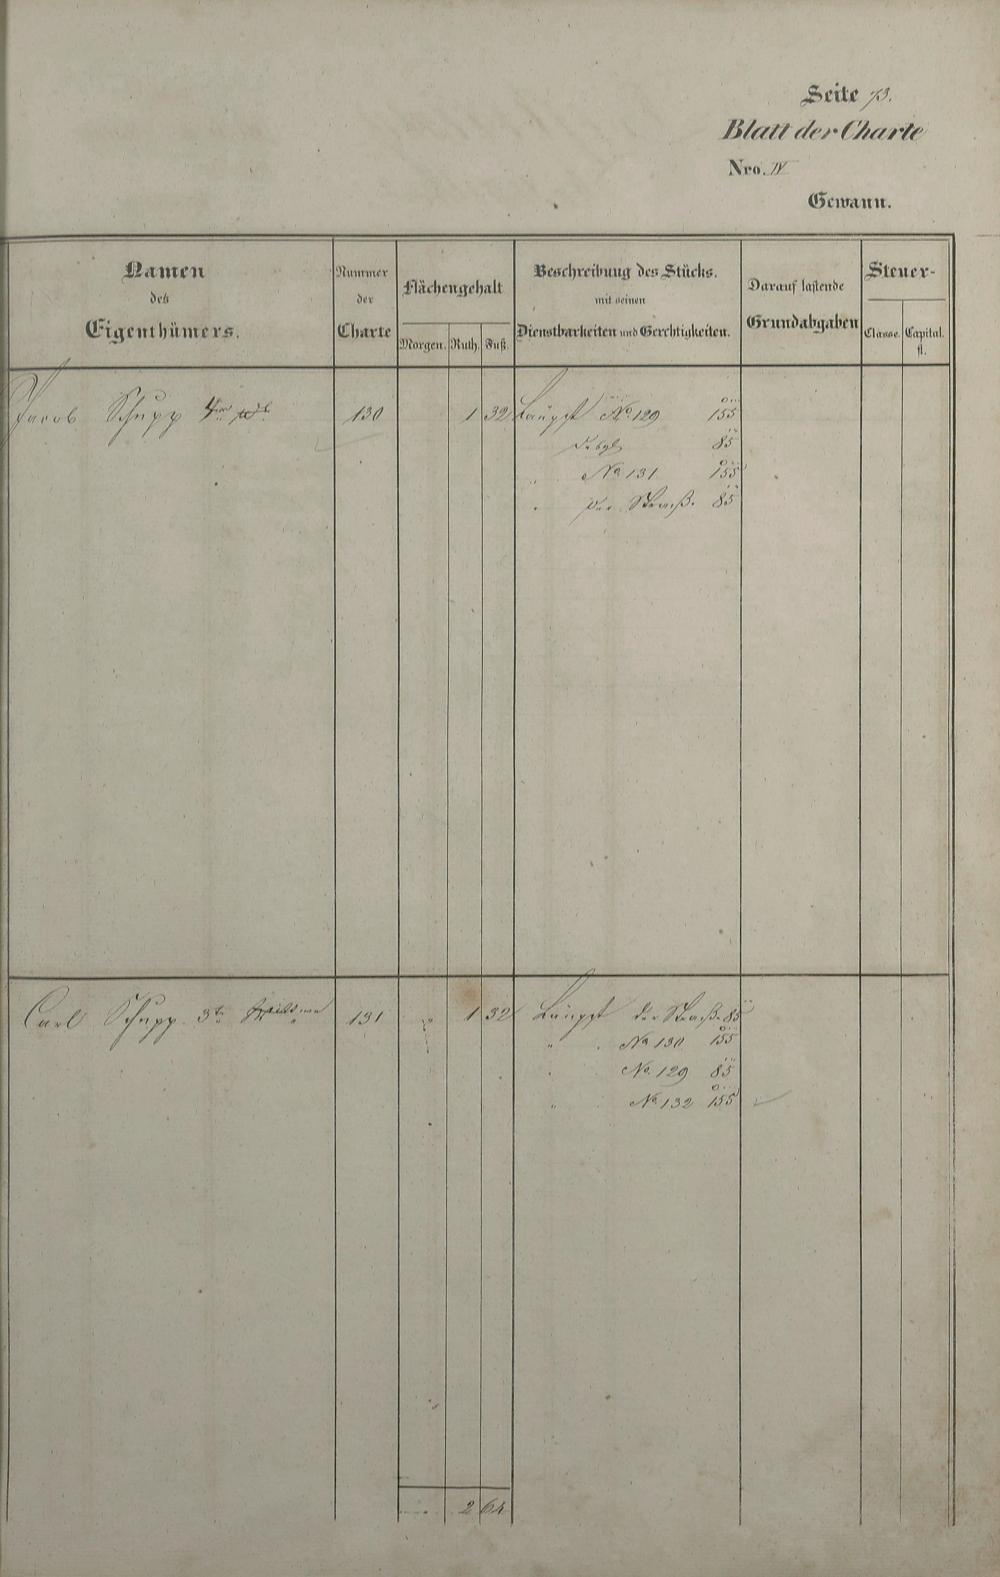 Seite 73.
Blatt der Charte
Nro. IV
Gewann.
Namen
des
Eigenthümers.
Nummer
der
Charte
Flächengehalt
Morgen. Ruth. Fuß.
Beschreibung des Stücks.
mit seinen
Dienstbarkeiten und Gerechtigkeiten.
Darauf lastende
Grundabgaben
Steuer-
Classe. Capital.
fl.
Jacob Schupp 4 130 1 32 No 129 155
85
" No 131 155
" Straß. 85
Carl Schupp 3te 131 " 1 32 der Straß. 85
" No 130 155
" No. 129 85
" No 132 155
2 64